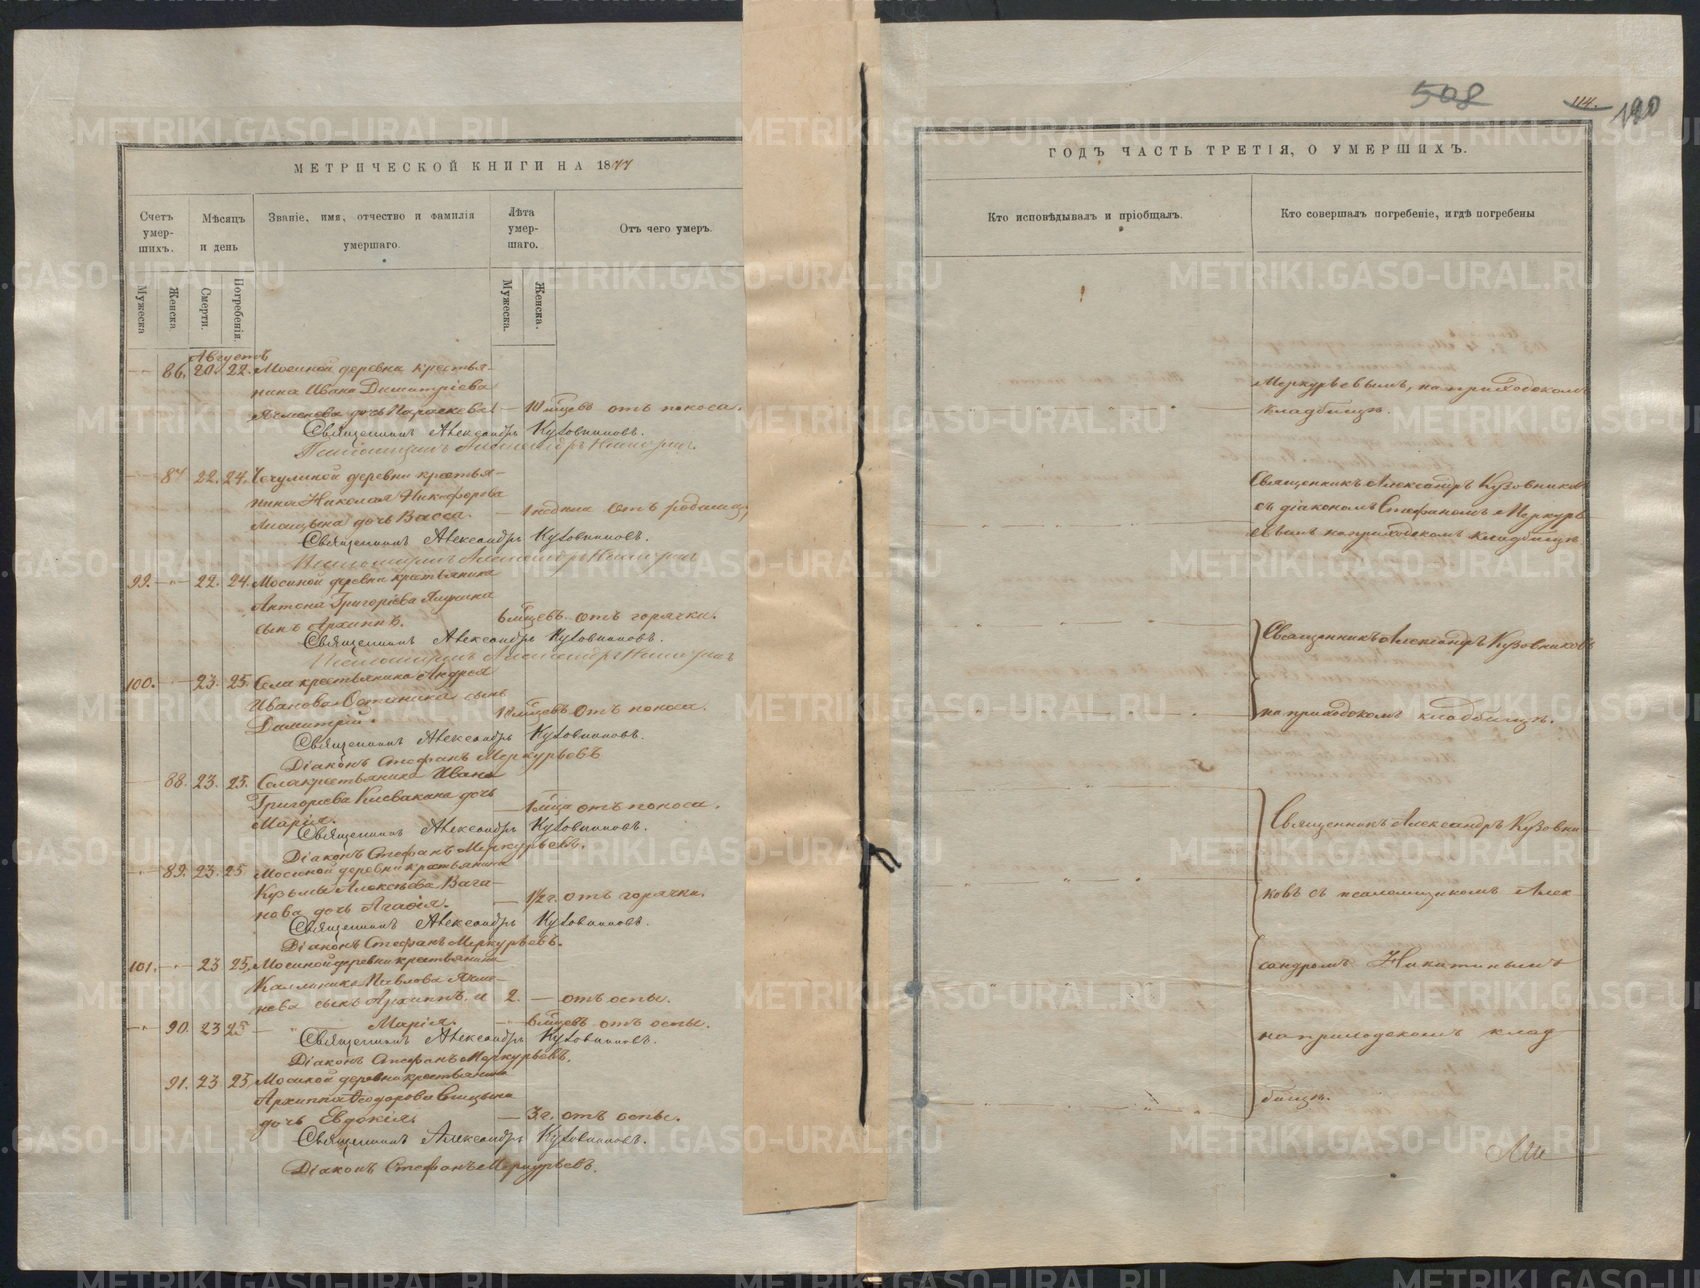 МЕТРИЧЕСКОЙ КНИГИ НА 1877
Счетъ умер-шихъ.
Мѣсяцъ и день
Званіе, имя, отчество и фамилія умершаго.
Лѣта умер-шаго.
Отъ чего умеръ.
Мужеска
Женска
Смерти.
Погребенія.
Мужеска.
Женска.
Августъ
86. 20. 22. Мосиной деревни крестья-
нина Ивана Димитріева
дочь Параскева — 10 мцевъ отъ поноса.
Священникъ Александръ Кузовниковъ.
87 22. 24. деревни крестья-
нина Николая Никифорова
дочь Васса. — 1 недели отъ родимцу
Священникъ Александръ Кузовниковъ.
99. 22. 24. Мосиной деревни крестьянина
Антона Григоріева
сынъ Архиппъ. 6 мцевъ отъ горячки.
Священникъ Александръ Кузовниковъ.
100. 23. 25. Села крестьянина Андрея
Иванова сынъ
Димитрій. отъ поноса.
Священникъ Александръ Кузовниковъ.
Діаконъ Стефанъ Меркурьевъ
88. 23. 25. Села крестьянина Ивана
Григоріева Кисвакана дочь
Марія. — 1 мца отъ поноса.
Священникъ Александръ Кузовниковъ.
Діаконъ Стефанъ Меркурьевъ.
89. 23. 25 Мосиной деревни крестьянина
Кузьмы Алексѣева Вага-
нова дочь Агафія. — 1½ г. отъ горячки.
Священникъ Александръ Кузовниковъ.
Діаконъ Стефанъ Меркурьевъ.
101. 23 25. Мосиной деревни крестьянина
Каллиника Павлова Ячме-
нева сынъ Архиппъ. и 2. — отъ оспы.
90. 23 25 Марія. — 6 мцевъ отъ оспы.
Священникъ Александръ Кузовниковъ.
Діаконъ Стефанъ Меркурьевъ.
91. 23 25. Мосиной деревни крестьянина
Архиппа Ѳеодорова
дочь Евдокія — 3 г. отъ оспы.
Священникъ Александръ Кузовниковъ.
Діаконъ Стефанъ Меркурьевъ.
508
114.
120
ГОДЪ ЧАСТЬ ТРЕТІЯ, О УМЕРШИХЪ.
Кто исповѣдывалъ и пріобщалъ.
Кто совершалъ погребеніе, и гдѣ погребены
Меркурьевымъ, на приходскомъ
кладбищѣ.
Священникъ Александръ Кузовниковъ
съ діакономъ Стефаномъ Меркурь-
евымъ на приходскомъ кладбищѣ
Священникъ Александръ Кузовниковъ
на приходскомъ кладбищѣ.
Священникъ Александръ Кузовни-
ковъ съ псаломщикомъ Алек
сандромъ Никитинымъ
на приходскомъ клад
бищѣ.
METRIKI.GASO-URAL.RU